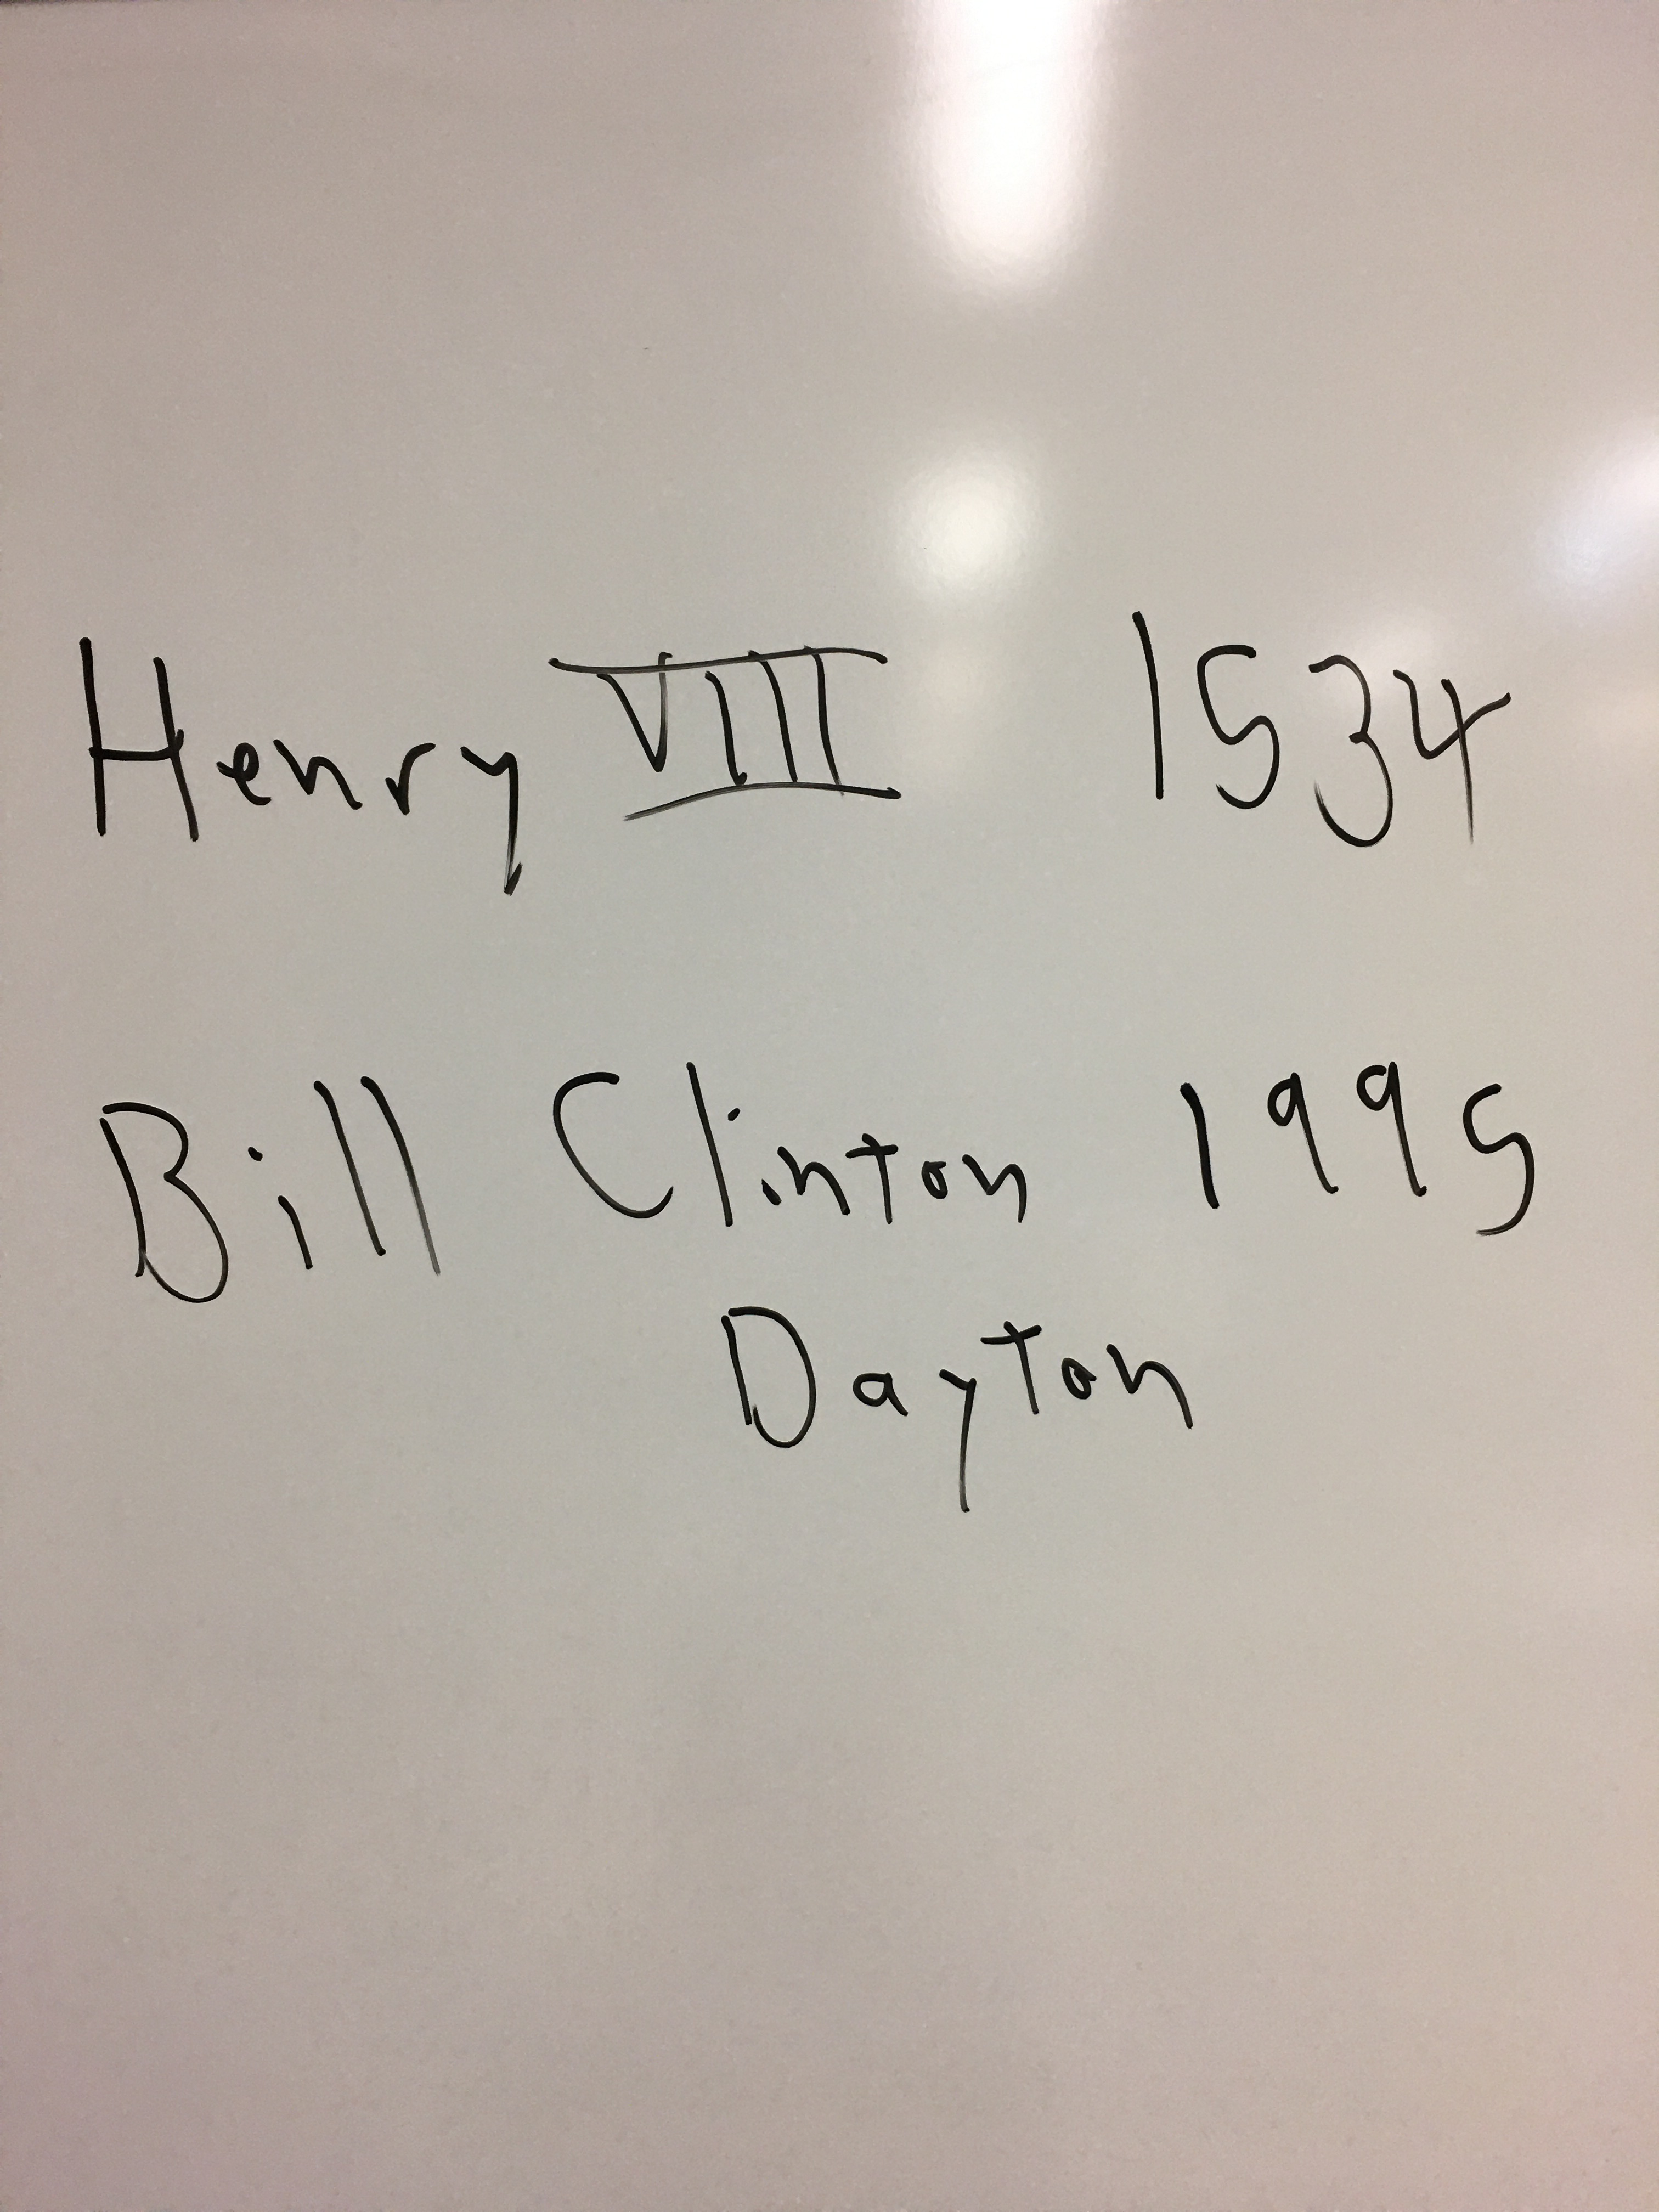 Henry VIII 1534
Bill Clinton 1995
Dayton